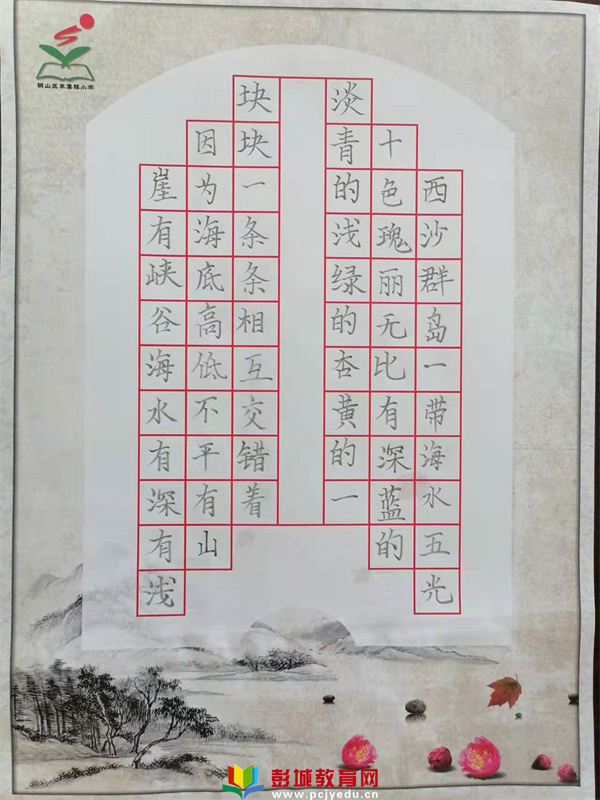 西沙群岛一带海水五光
十色瑰丽无比有深蓝的
淡青的浅绿的杏黄的一
块块一条条相互交错着
因为海底高低不平有山
崖有峡谷海水有深有浅
彭城教育网
www.pcjyedu.cn